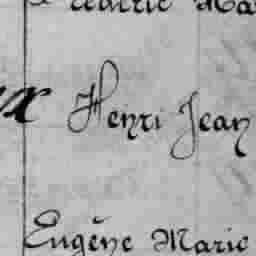 x Henri Jean
Eugène Marie